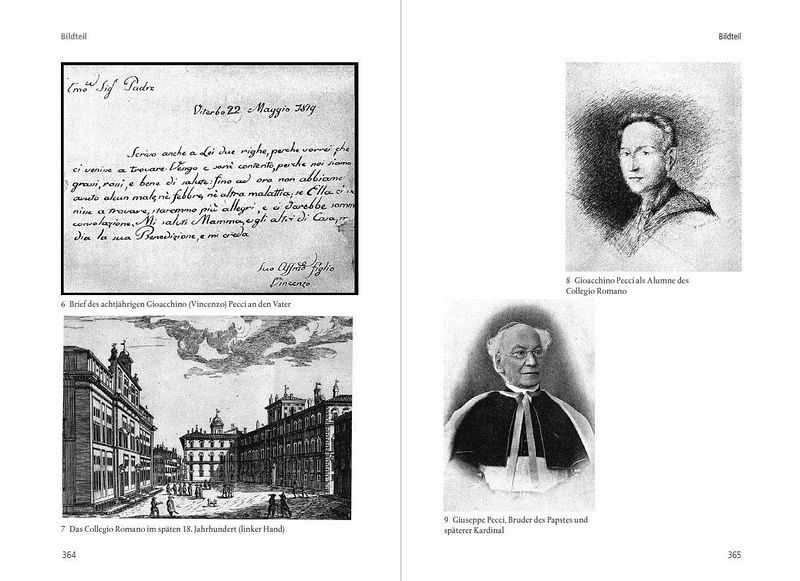 Bildteil
Emo Sig Padre
Viterbo 22 Maggio 1819
Scrivo anche a Lei due righe, perche vorrei, che
ci venise a trovare. Venga e sarà contento, perche noi siamo
grassi, rossi, e bene di salute: fino ad ora non abbiamo
avuto alcun male, nè febbre, nè altra malattia, se Ella ci ve
nise a trovare, staremo più allegri, e ci darebbe somm
consolazione. Mi saluti Mamma, e gli altri di Casa, m
dia la sua Benedizione, e mi creda
Suo Affmo figlio
Vincenzo
6 Brief des achtjährigen Gioacchino (Vincenzo) Pecci an den Vater
7 Das Collegio Romano im späten 18. Jahrhundert (linker Hand)
364
Bildteil
8 Gioacchino Pecci als Alumne des
Collegio Romano
9 Giuseppe Pecci, Bruder des Papstes und
späterer Kardinal
365